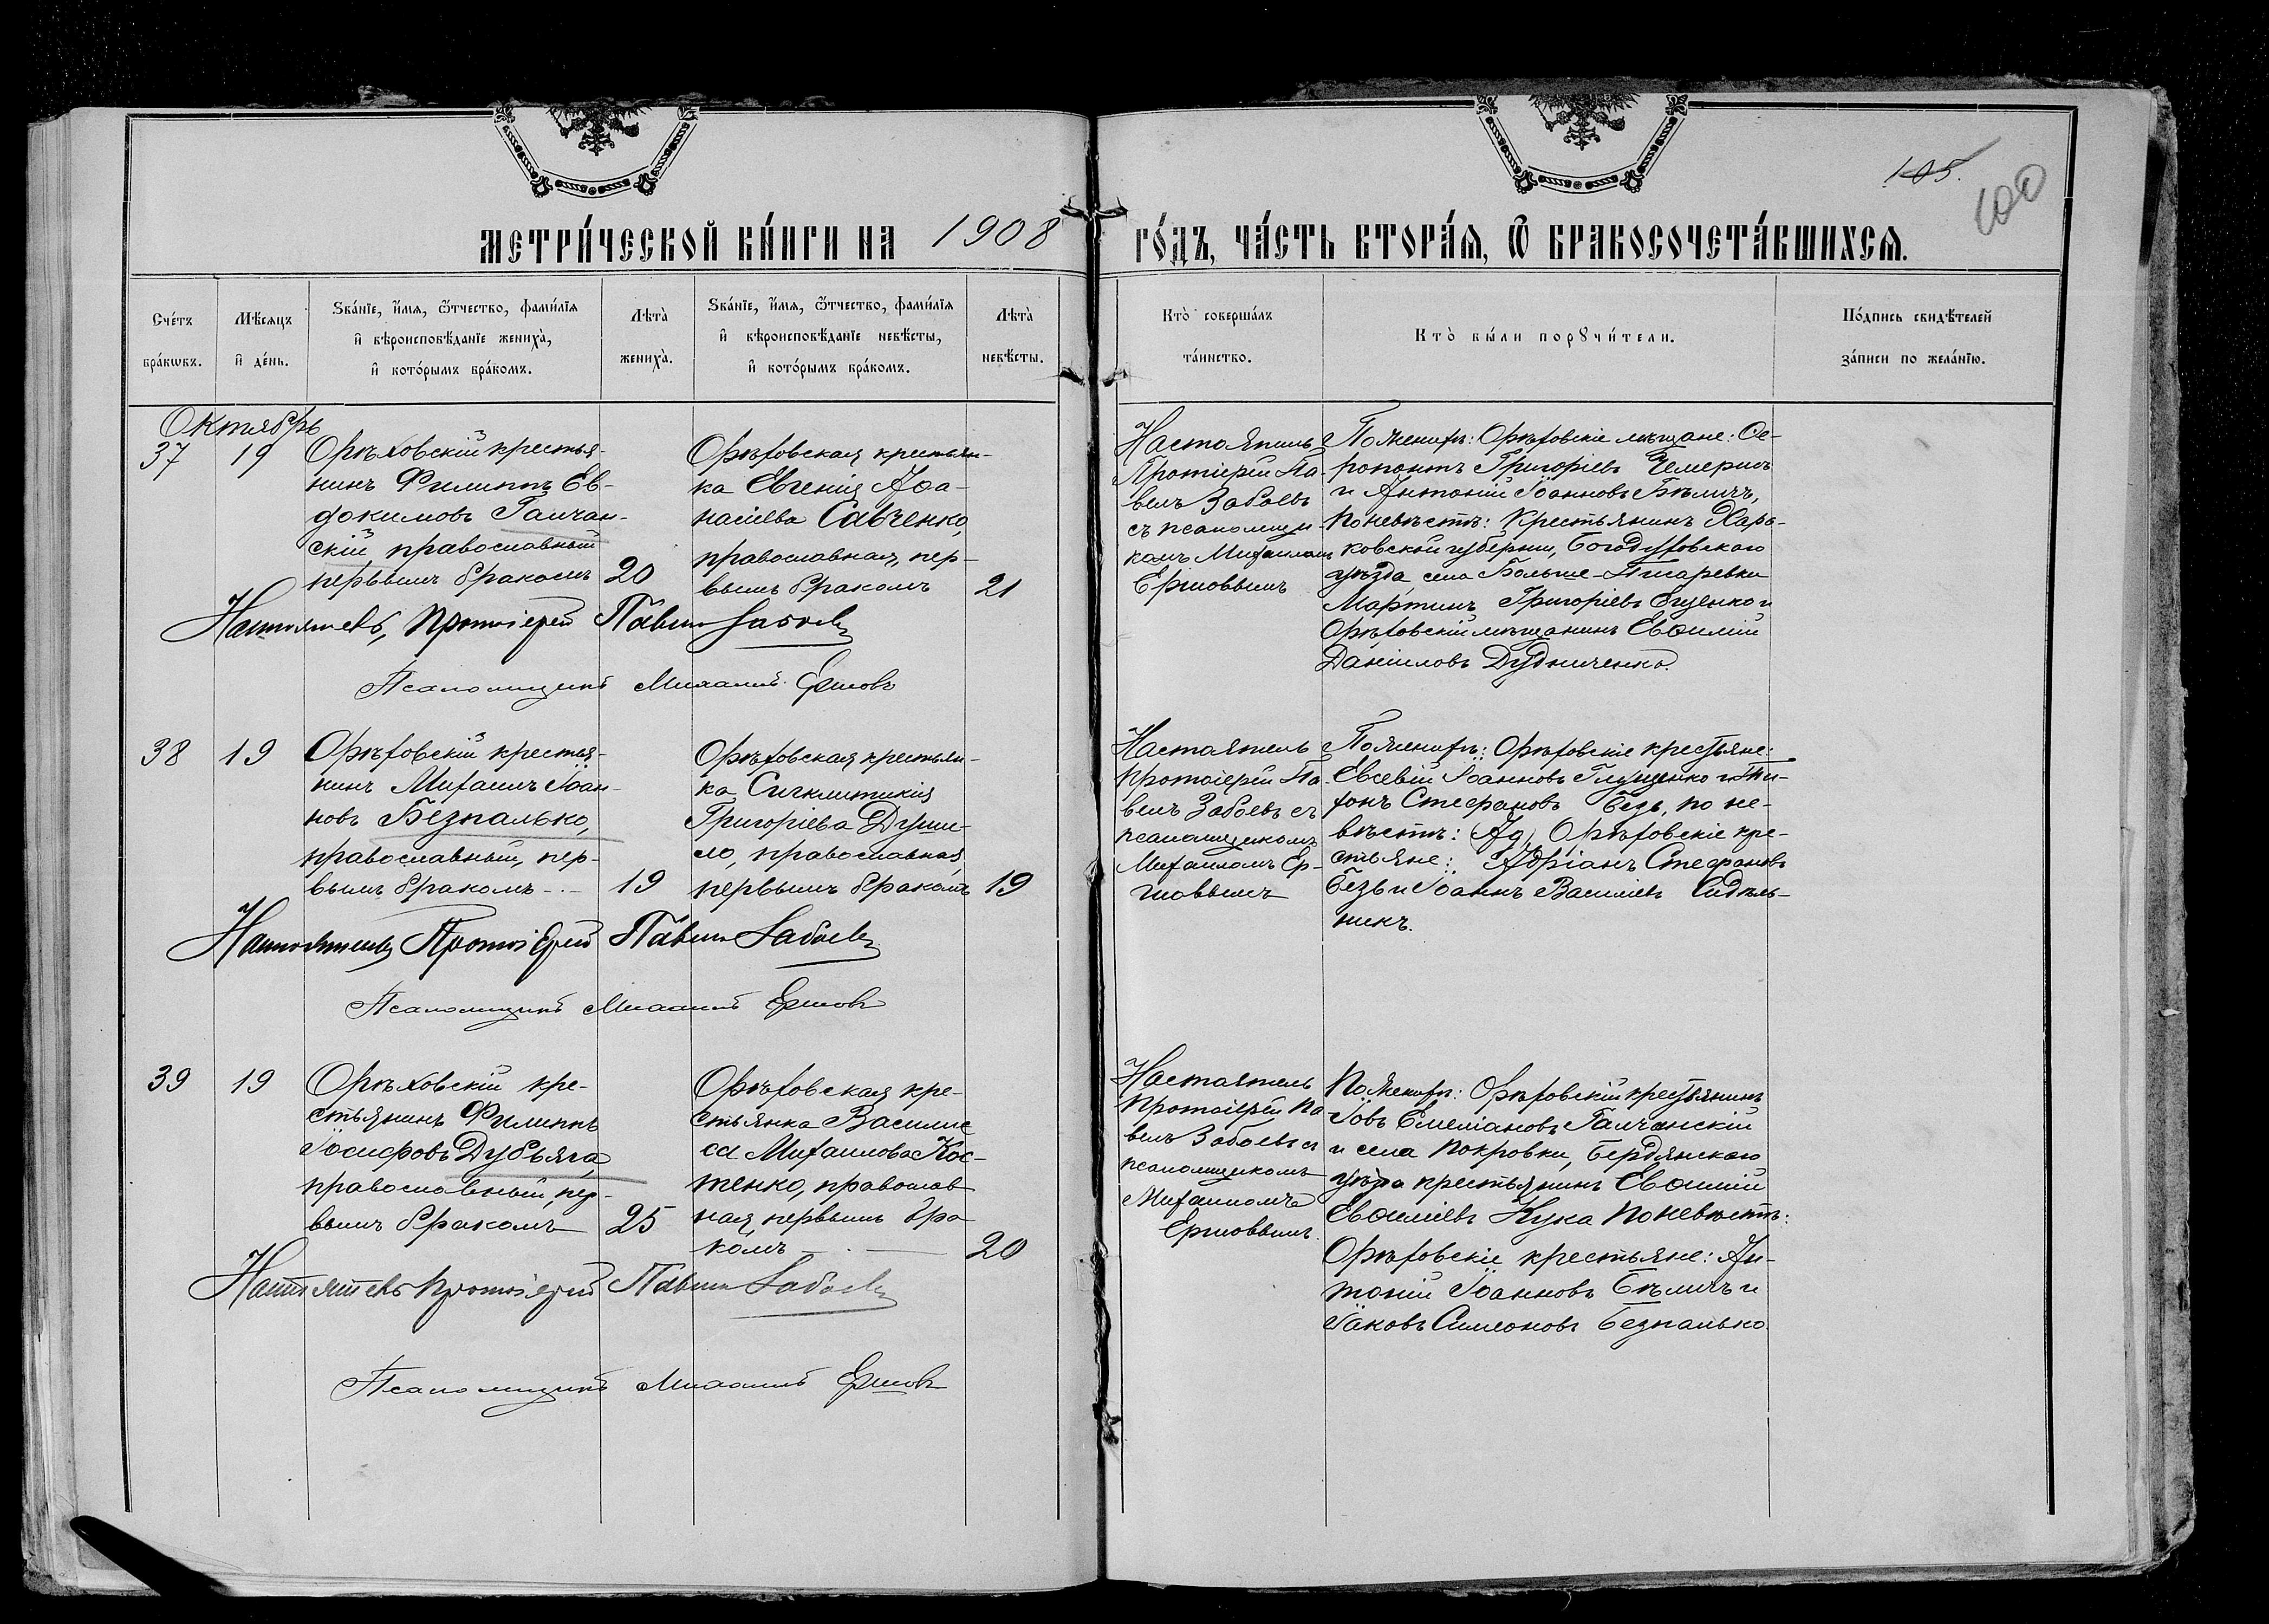 105.
100
МЕТРИ́ЧЕСКОЙ КНИ́ГИ НА 1908 ГО́ДЪ, ЧА́СТЬ ВТОРА́Я, Ѿ БРАКОСОЧЕТА́ВШИХСЯ.
Сче́тъ бра́кѡвъ.
Мѣ́сяцъ и҆ де́нь.
Ѕва́нїе, и҆́мя, ѻ҆́тчество, фами́лїя
и҆ вѣроисповѣ́данїе жениха̀,
и҆ кото́рымъ бра́комъ.
Лѣта̀ жениха̀.
Ѕва́нїе, и҆́мя, ѻ҆́тчество, фами́лїя
и҆ вѣроисповѣ́данїе невѣ́сты,
и҆ кото́рымъ бра́комъ.
Лѣта̀ невѣ́сты.
Кто̀ соверша́лъ та́инство.
Кто̀ бы́ли порꙋчи́тели.
По́дпись свидѣ́телей
за́писи по жела́нїю.
Октябрь
37
19
Орѣховскій крестья-
нинъ Филиппъ Ев-
докимовъ Галчан-
скій православный
первымъ бракомъ
20
Орѣховская крестьян-
ка Евгенія Аѳа-
насіева Савченко,
православная, пер-
вымъ бракомъ
21
Настоятель
Протоіерей Па-
велъ Забаевъ
съ псаломщи-
комъ Михаиломъ
Ершовымъ
По женихѣ: Орѣховскіе мѣщане: Ѳе-
ропонтъ Григоріевъ Чемерисъ
и Антоній Іоанновъ Бѣличъ,
по невѣстѣ: Крестьянинъ Харь-
ковской губерніи, Богодуховскаго
уѣзда, села Больше-Писаревки
Мартинъ Григоріевъ Ященко и
Орѣховскій мѣщанинъ Евѳимій
Даніиловъ Дудниченко.
Настоятель, Протоіерей Павелъ Забаевъ
Псаломщикъ Михаилъ Ершовъ
38
19
Орѣховскій крестья-
нинъ Михаилъ Іоан-
новъ Безпалько,
православный, пер-
вымъ бракомъ
19
Орѣховская крестьян-
ка Сигклитикія
Григоріева Души-
ло, православная,
первымъ бракомъ
19
Настоятель
Протоіерей Па-
велъ Забаевъ съ
псаломщикомъ
Михаиломъ Ер-
шовымъ
По женихѣ: Орѣховскіе крестьяне:
Евсевій Іоанновъ Глущенко и Ти-
хонъ Стефановъ Безъ, по не-
вѣстѣ: (Ад) Орѣховскіе кре-
стьяне: Адріанъ Стефановъ
Безъ и Іоаннъ Василіевъ Сидѣль-
никъ.
Настоятель Протоіерей Павелъ Забаевъ
Псаломщикъ Михаилъ Ершовъ
39
19
Орѣховскій кре-
стьянинъ Филиппъ
Іосифовъ Дубъяга,
православный, пер-
вымъ бракомъ
25
Орѣховская кре-
стьянка Василис
са Михаилова Кос-
тенко, православ
ная, первымъ бра
комъ
20
Настоятель
Протоіерей Па
велъ Забаевъ съ
псаломщикомъ
Михаиломъ
Ершовымъ.
По женихѣ: Орѣховскій крестьянинъ
Іовъ Емеліановъ Галчанскій
и села Покровки, Бердянскаго
уѣзда крестьянинъ Евѳимій
Евѳиміевъ Кука по невѣстѣ:
Орѣховскіе крестьяне: Ан-
тоній Іоанновъ Бѣличъ и
Іаковъ Симеоновъ Безпалько.
Настоятель Протоіерей Павелъ Забаевъ
Псаломщикъ Михаилъ Ершовъ